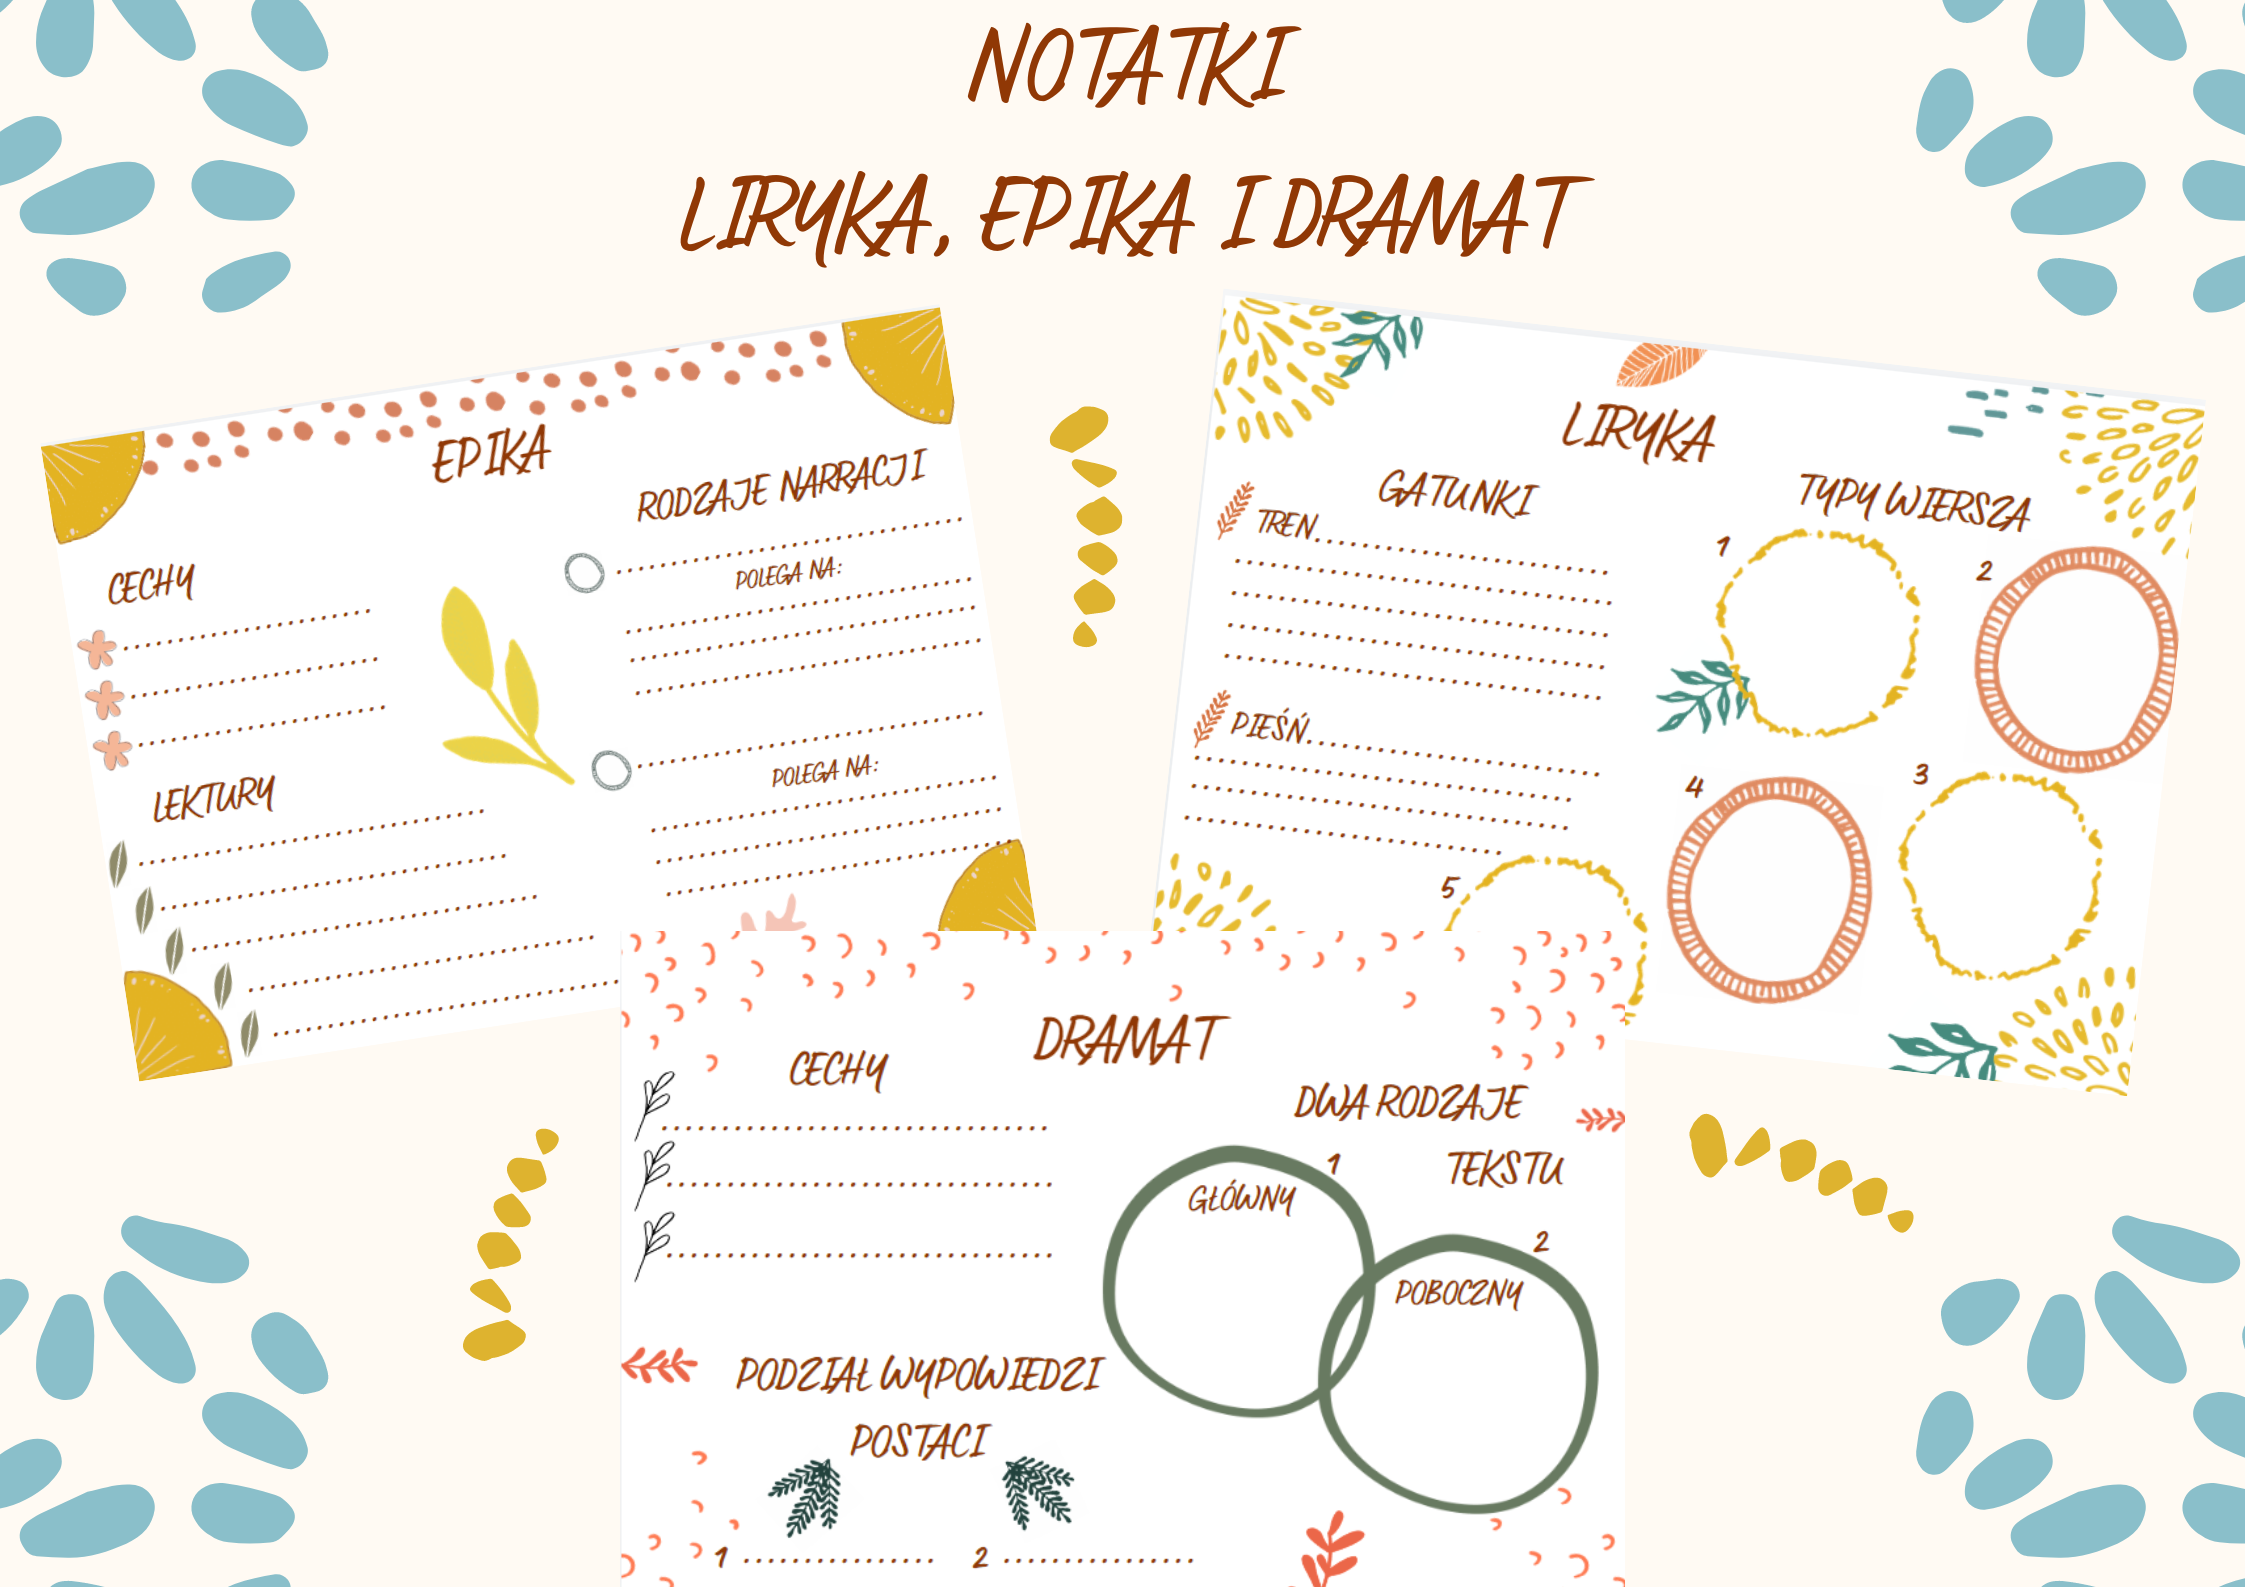 NOTATKI
LIRYKA, EPIKA I DRAMAT
EPIKA
CECHY
LEKTURY
RODZAJE NARRACJI
POLEGA NA:
POLEGA NA:
LIRYKA
GATUNKI
TREN
PIEŚŃ
TYPY WIERSZA
1
2
3
4
5
DRAMAT
CECHY
PODZIAŁ WYPOWIEDZI
POSTACI
1
2
DWA RODZAJE
TEKSTU
1
GŁÓWNY
2
POBOCZNY